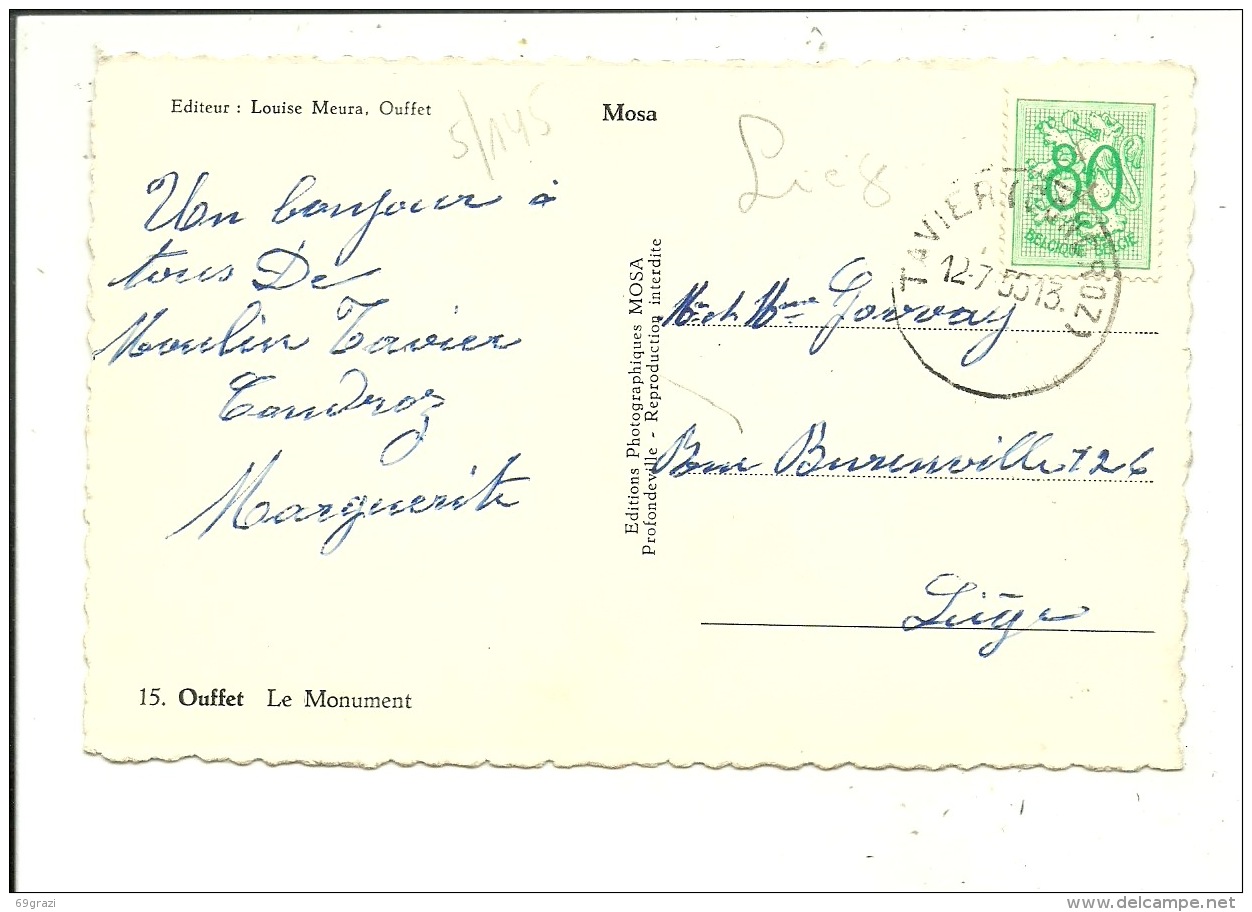 Editeur : Louise Meura, Ouffet
Mosa
5/145
Lieg
Un bonjour à
tous De
Moulin Tavier
Condroz
Marguerite
15. Ouffet Le Monument
Editions Photographiques MOSA
Profondeville - Reproduction interdite
80
BELGIQUE BELGIE
TAVIER (CONDROZ)
12-7 13
Mr et Mme
Rue Burenville 126
Liège
69grazi
www.delcampe.net